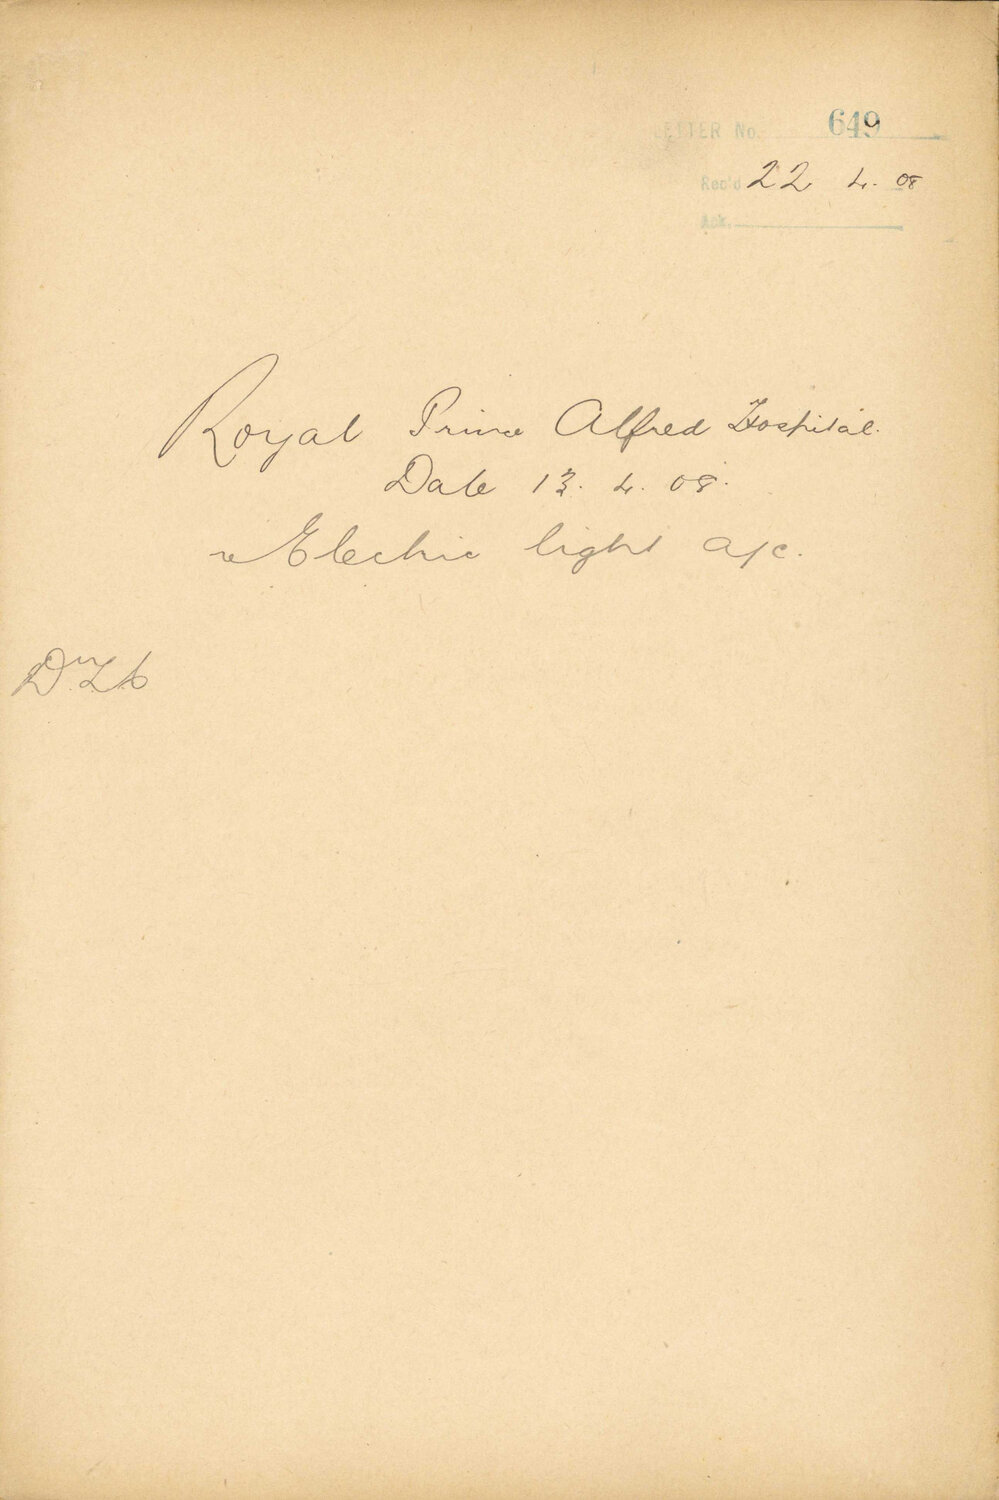 LETTER No. 649
Rec'd 22 4. 08
Ack.
Royal Prince Alfred Hospital.
Date 13. 4. 08.
re Electric light a/c.